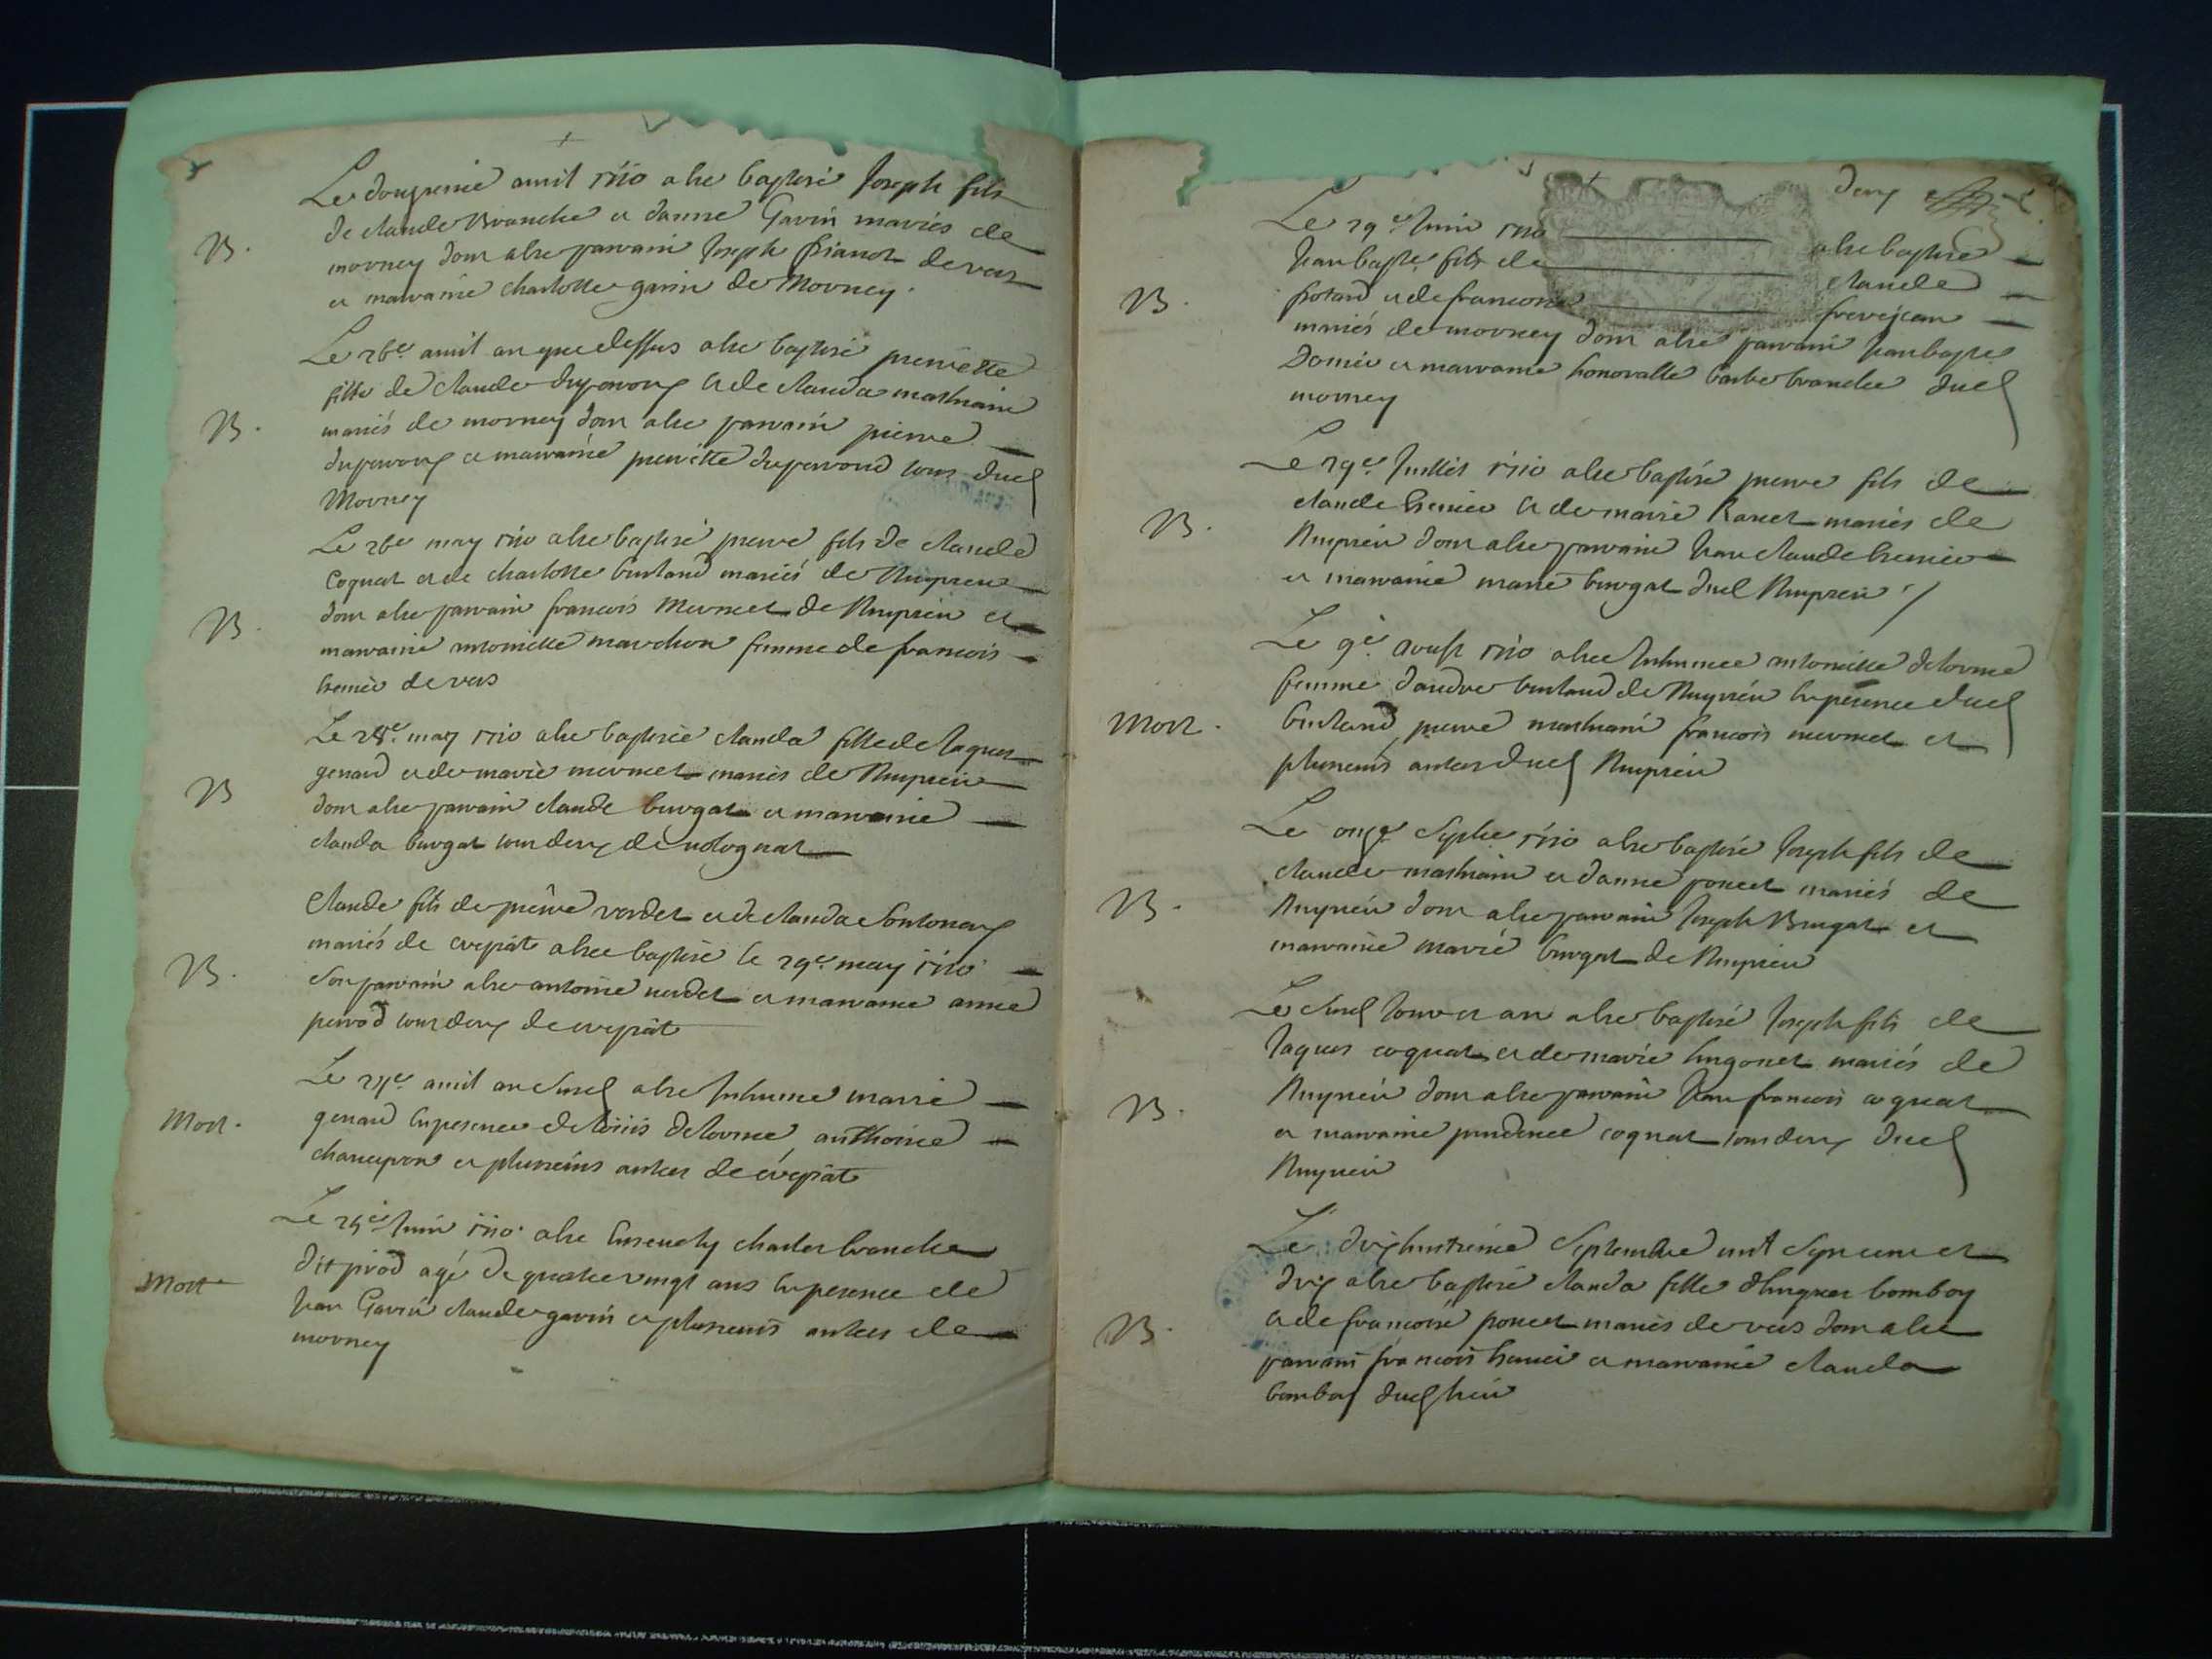 Le douzieme avril 1710 a ete baptisé Joseph fils
de claude Branche et danne Gavin mariés de
B.
morney dont a ete parrain Joseph de vers
et marraine charlotte gavin de Morney.
Le 26e avril an que dessus a ete baptisé pierrette
fille de claude duperoux et de clauda mathieu
B.
mariés de morney dont a ete parrain pierre
duperoux et marraine pierrette duperoux tous dud
Morney
Le 26e may 1710 a ete baptisé pierre fils de claude
Coquat et de charlotte mariés de Nuyrieu
B.
dont a ete parrain francois Mermet de Nuyrieu et
marraine antoinette marchon femme de francois
de vers
Le 28e may 1710 a ete baptisée clauda fille de Jaques
genard et de marie mermet mariés de Nuyrieu
B
dont a ete parrain claude burgat et marraine
clauda burgat tous deux de volognat
Claude fils de pierre verdet et de clauda
mariés de crepiat a ete baptisé le 29e may 1710
B.
son parrain a ete antoine verdet et marraine anne
tous deux de crepiat
Le avril an susd a ete Inhumé marie
Mort.
genard En presence de delorme anthoine
et plusieurs autres de crepiat
Le 25e Juin 1710 a ete Enseuely charles branche
Mort
dit agé de quatre vingt ans En presence de
Jean Gavin claude gavin et plusieurs autres de
morney
deux
Le 29e Juin 1710 a ete baptisé
Jean bapte fils de claude
B.
et de francoise
mariés de morney dont a ete parrain Jean bapte
et marraine honorable barbe branche dud
morney
Le 29e Juillet 1710 a ete baptisé pierre fils de
claude et de marie mariés de
B.
Nuyrieu dont a ete parrain Jean claude
et marraine marie burgat dud Nuyrieu /
Le 9e aoust 1710 a ete Inhumée antoinette delorme
femme dandre de Nuyrieu En presence dud
Mort.
pierre mathieu francois mermet et
plusieurs autres dud Nuyrieu
Le onze 1710 a ete baptisé Joseph fils de
claude mathieu et danne poncet mariés de
B.
Nuyrieu dont a ete parrain Joseph Burgat et
marraine marie burgat de Nuyrieu
Le susd Jour et an a ete baptisé Joseph fils de
Jaques coquat et de marie hugonet mariés de
B.
Nuyrieu dont a ete parrain Jean francois coquat
et marraine prudence coquat tous deux dud
Nuyrieu
Le dix huitieme Septembre mil sept cent et
dix a ete baptisé clauda fille dhugues bomboy
B.
et de francoise poncet mariés de vers dont a ete
parrain francois et marraine clauda
bomboy dud lieu